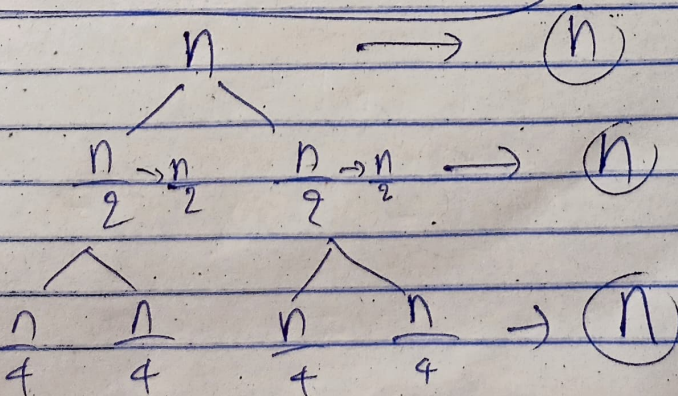 n → n
n/2 → n/2 n/2 → n/2 → n
n/4 n/4 n/4 n/4 → n